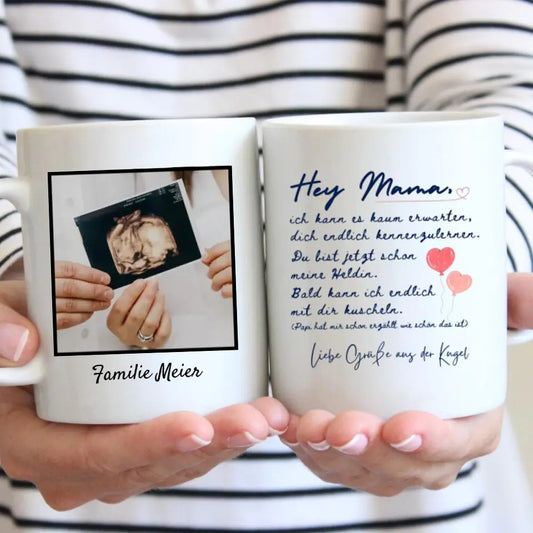 Familie Meier
Hey Mama,
ich kann es kaum erwarten,
dich endlich kennenzulernen.
Du bist jetzt schon
meine Heldin.
Bald kann ich endlich
mit dir kuscheln.
(Papa hat mir schon erzählt, wie schön das ist)
Liebe Grüße aus der Kugel